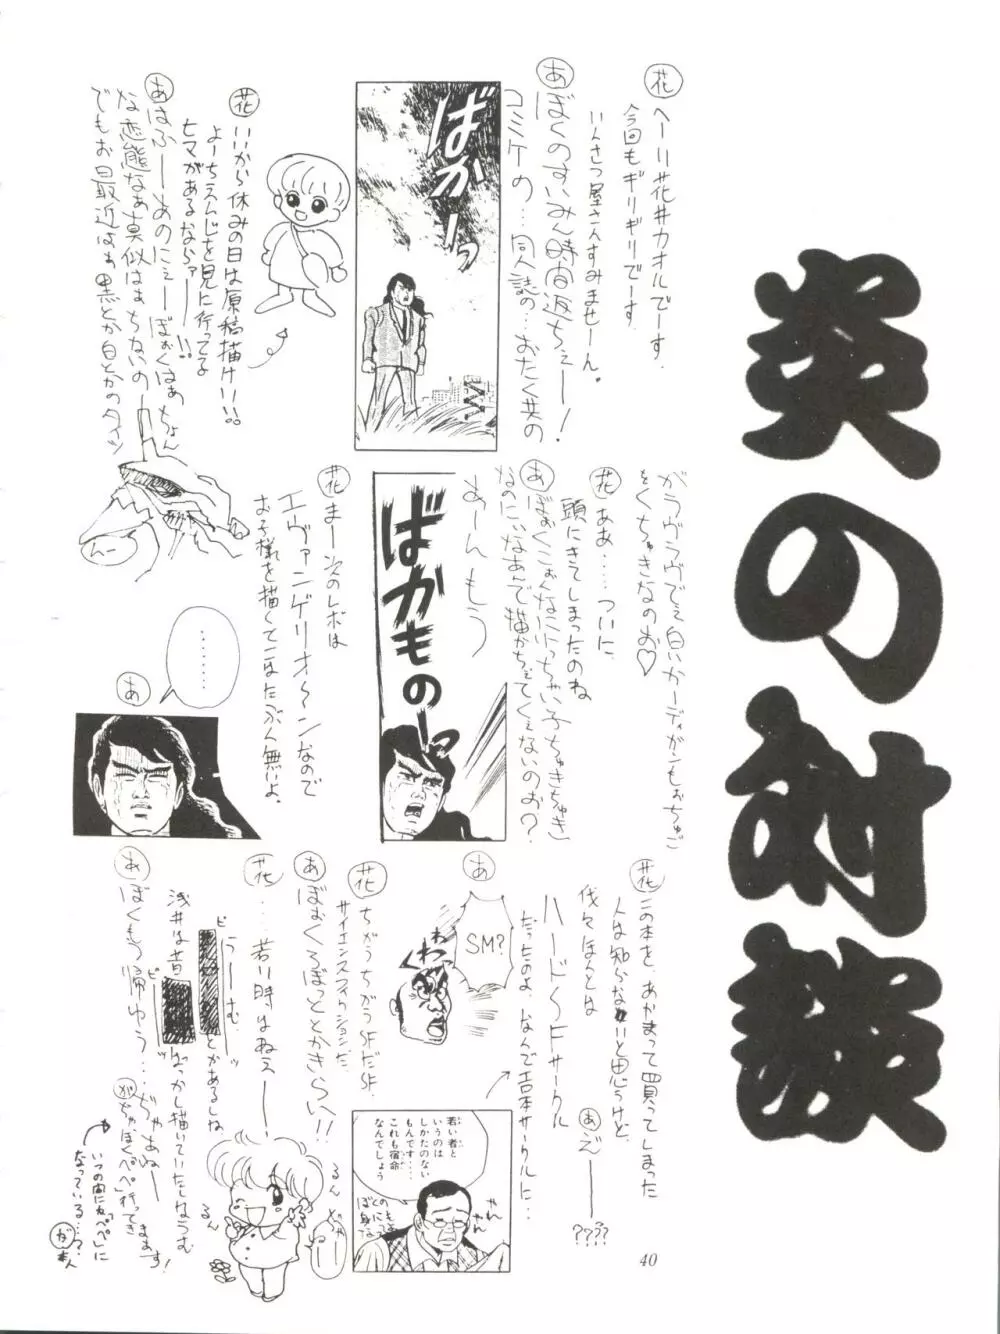 炎の対談
花 へーい花井カオルでーす。
今回もギリギリでーす
いんさつ屋さんすみませーん。
あ ぼくのすいみん時間返ちぇー!
コミケの…同人誌の…おたく共の
ばかーっ
花 いいから休みの日は原稿描け!!!
よーちえんじを見に行ってる
ヒマがあるならァー!!
あ はふーあのにぇーぼぉくはぁちょん
な変態なぁ真似はぁちないの
でもお最近はぁ黒とか白とかのタイツ
がラヴラヴでぇ白いカーディガンもぉちゅご
をくちゅきなのお♡
花 ああ……ついに
頭にきてしまったのね
あ ぼぉくこぉんなにいっちゃい子ちゅきちゅき
なのにいなあんで描かちぇてくえないのお?
あーんもう
ばかものーっ
花 まー次のレボは
エヴァンゲリオ〜ンなので
お子様を描くてことはたぶん無いよ。
んー
………
あ
花 この本を、あやまって買ってしまった
人は知らないと思うけど
僕々ほんとは
あぞー????
ハード〜SFサークル
だったのよ、なんでエロ本サークルに…
あ
SM?
くわっ
花 ちがうちがうSFだSF
サイエンスフィクションだ
あ ぼぉくろぼっととかきらい!!
花 …若い時はねぇー
ピーうーむ。とかあるしね
浅井は昔ピーッばっかし描いていたしなうむ
あ ぼくもう帰ゆう…ぢゃあねー
がちゃぼくペペ行ってきまぁす!
いつの間に丸「ペペ」に
なっている…?
が 本人
るんるん
ぢゃーねー
若い者と
いうのは
しかたのない
もんです…
これも宿命
なんでしょう
やれやれ
40